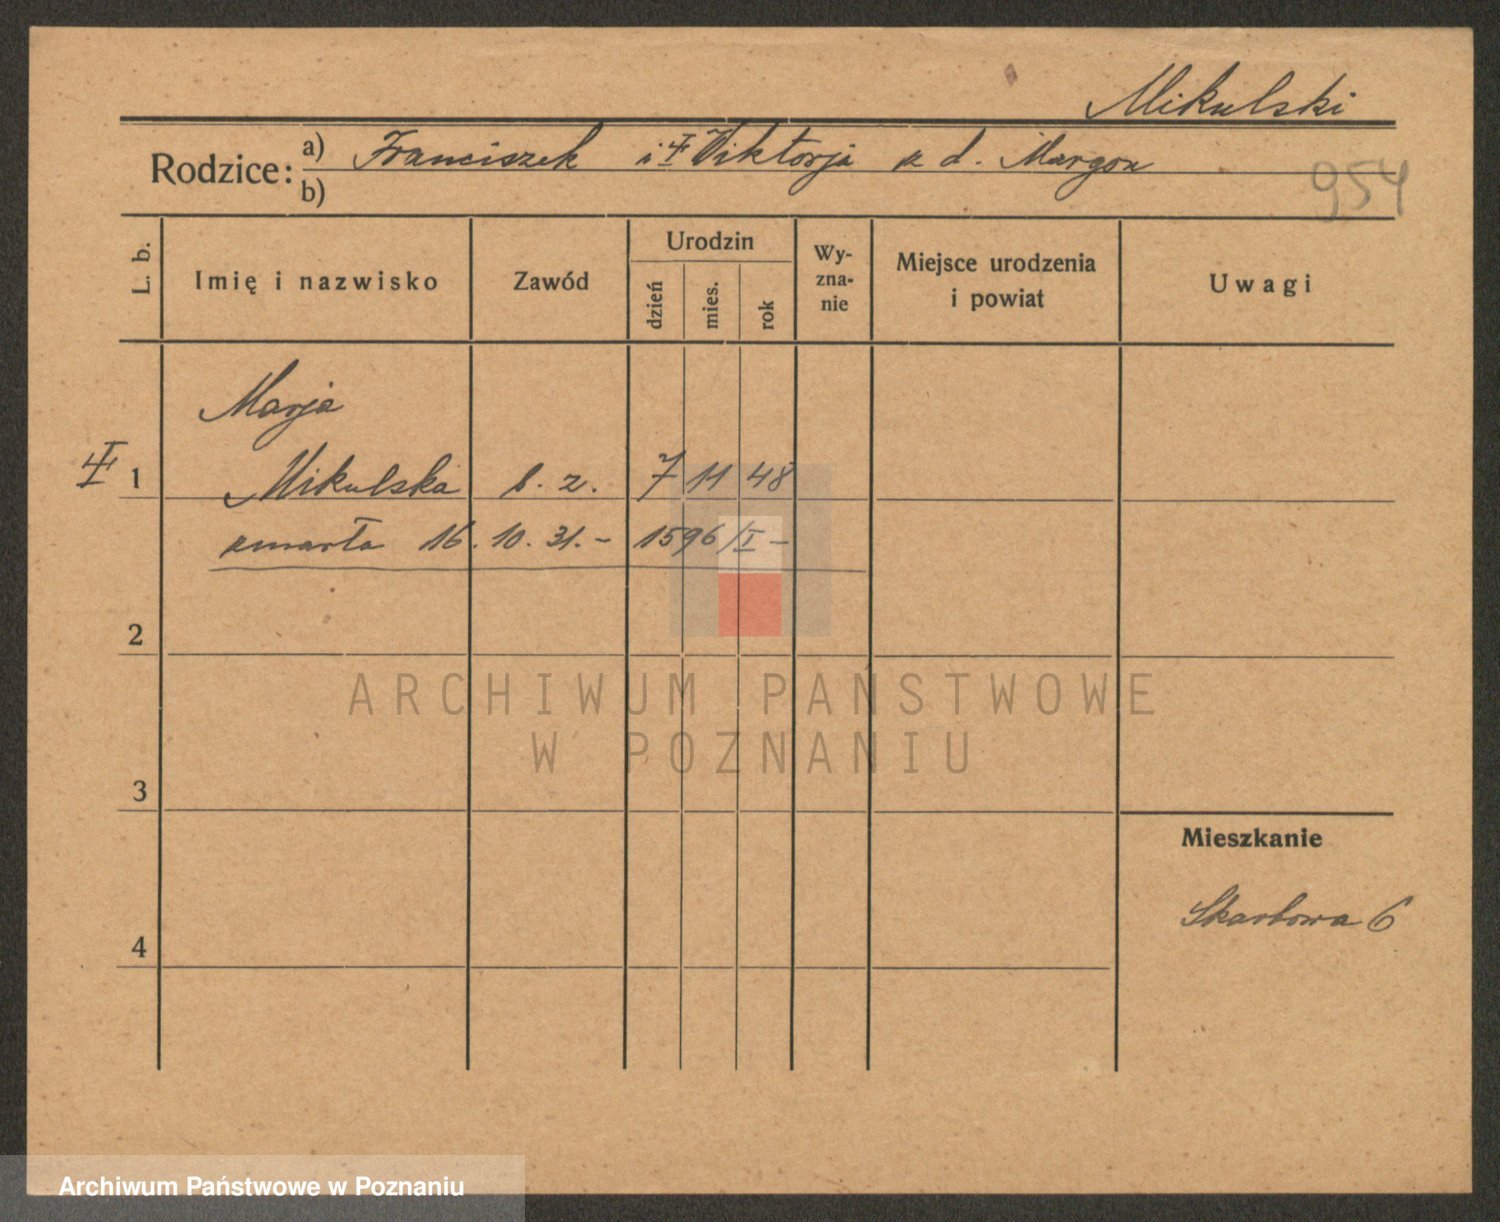 Mikulski
Rodzice: a) Franciszek i Viktorja u d. Margon
b)
954
L. b.
Imię i nazwisko
Zawód
Urodzin
dzień
mies.
rok
Wy-
zna-
nie
Miejsce urodzenia
i powiat
Uwagi
Marja
1 Mikulska b. z. 7 11 48
umarła 16. 10. 31. – 1596/I –
2
3
4
Mieszkanie
Skarbowa 6
ARCHIWUM PAŃSTWOWE
W POZNANIU
Archiwum Państwowe w Poznaniu